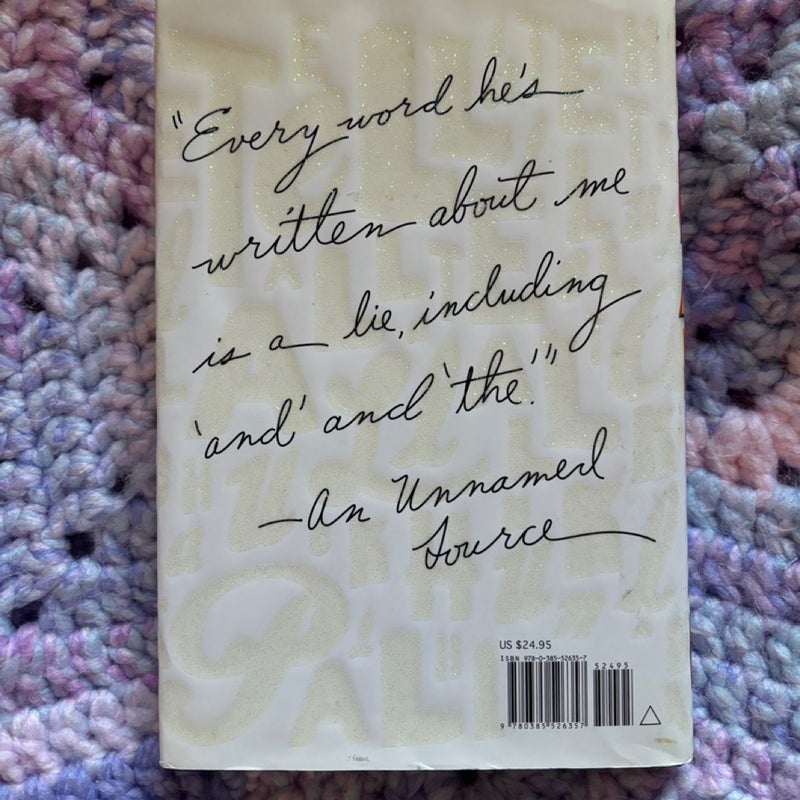 "Every word he's
written about me
is a lie, including
'and' and 'the.'"
—An Unnamed
Source
US $24.95
ISBN 978-0-385-52635-7
52495
9 780385 526357